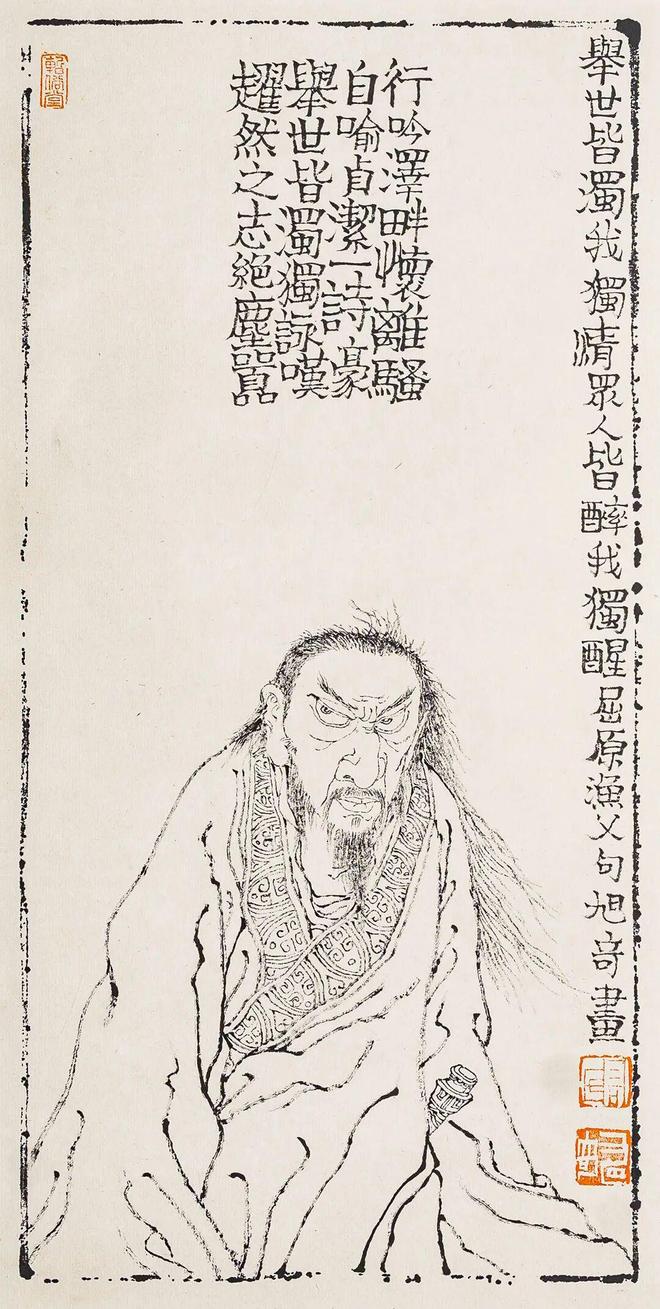 舉世皆濁我獨清眾人皆醉我獨醒屈原漁父句旭竒畫
行吟澤畔懷離騷
自喻貞潔一詩豪
舉世皆濁獨詠嘆
趯然之志絕塵囂